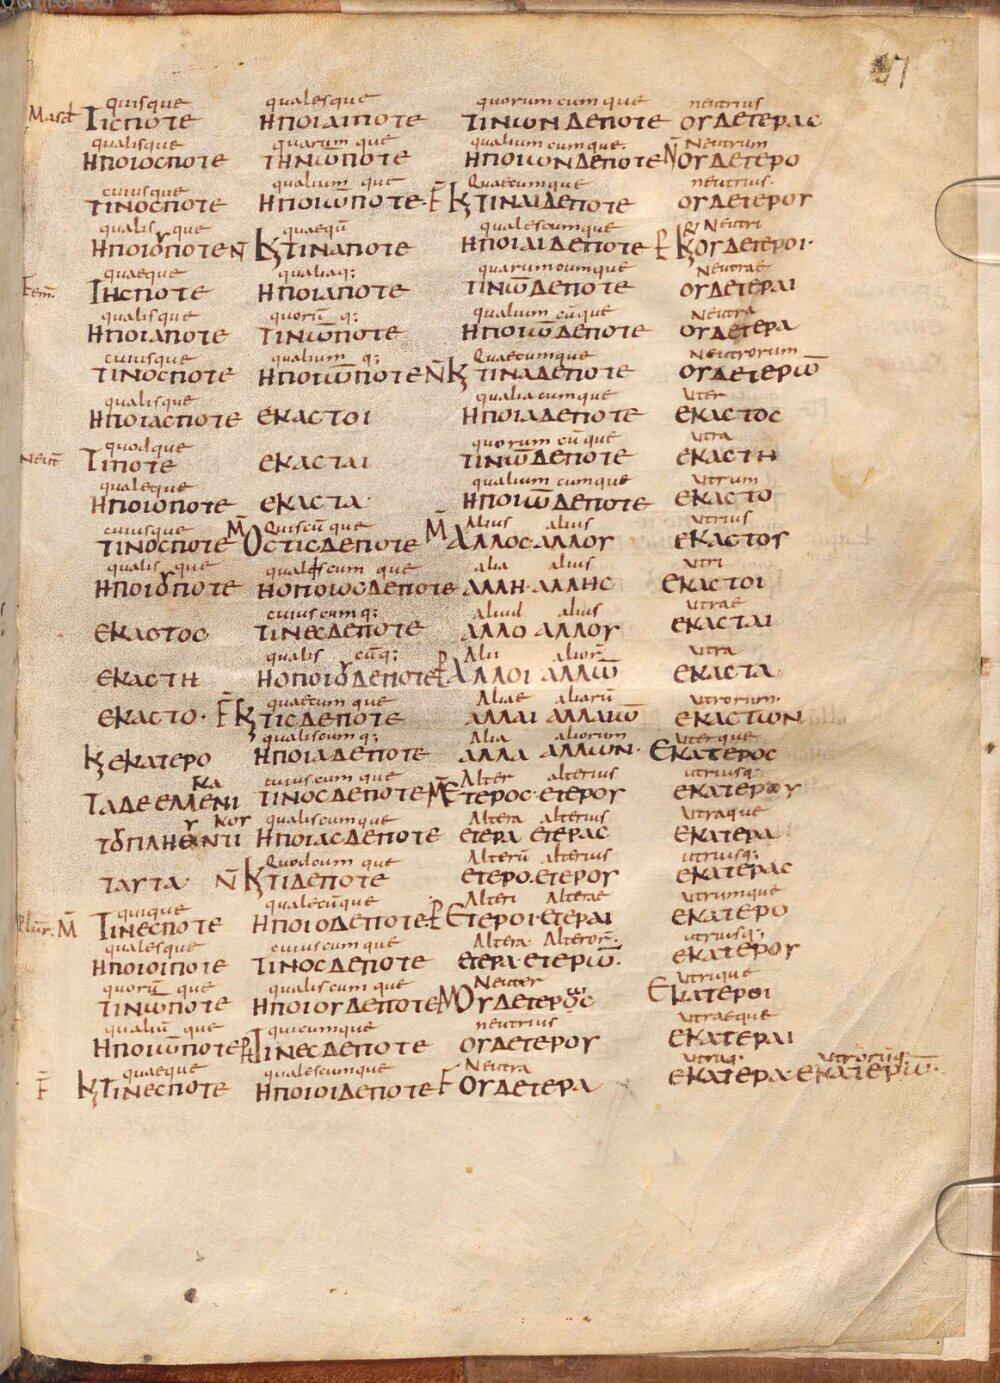 47
quisque
Masc̄ ΤΙϹΠΟΤΕ
qualisque
ΗΠΟΙΟϹΠΟΤΕ
cuiusque
ΤΙΝΟϹΠΟΤΕ
qualis que
ΗΠΟΙȣΠΟΤΕ
quaeque
Fem̄. ΤΗϹΠΟΤΕ
qualisque
ΗΠΟΙΑΠΟΤΕ
cuiusque
ΤΙΝΟϹΠΟΤΕ
qualisque
ΗΠΟΙΑϹΠΟΤΕ
quodque
Neut̄ ΤΙΠΟΤΕ
qualeque
ΗΠΟΙΟΠΟΤΕ
cuiusque
ΤΙΝΟϹΠΟΤΕ
qualis que
ΗΠΟΙȣΠΟΤΕ
ΕΚΑϹΤΟϹ
ΕΚΑϹΤΗ
ΕΚΑϹΤΟ·
Ϗ ΕΚΑΤΕΡΟ
ΚΑ
ΤΑΔΕΕΛΛΕΝΙ
Υ ΚΟΥ
ΤȣΠΛΗΘΑΝΤΙ
ΤΑΥΤΑ·
quique
Plur̄. M̄ ΤΙΝΕϹΠΟΤΕ
qualesque
ΗΠΟΙΟΙΠΟΤΕ
quorū que
ΤΙΝΩΠΟΤΕ
qualiū que
ΗΠΟΙΩ̄ΠΟΤΕ
quaeque
F̄ Ϗ ΤΙΝΕϹΠΟΤΕ
qualesque
ΗΠΟΙΑΙΠΟΤΕ
quarum que
ΤΗΝΩΠΟΤΕ
qualium que
ΗΠΟΙΩΠΟΤΕ·
quaeqū
N̄ Ϗ ΤΙΝΑΠΟΤΕ
qualiaq;
ΗΠΟΙΑΠΟΤΕ
quorū q;
ΤΙΝΩ̄ΠΟΤΕ
qualium q;
ΗΠΟΙΩ̄ΠΟΤΕ
ΕΚΑϹΤΟΙ
ΕΚΑϹΤΑΙ
ΕΚΑϹΤΑ·
Quiscū que
M̄ ΟϹΤΙϹΔΕΠΟΤΕ
qualescum que
ΗΟΠΟΙΩϹΔΕΠΟΤΕ
cuiuscumq;
ΤΙΝΕϹΔΕΠΟΤΕ
qualis cūq;
ΗΟΠΟΙȣΔΕΠΟΤΕ
quaecum que
F̄ Ϗ ΤΙϹΔΕΠΟΤΕ
qualiscumq;
ΗΠΟΙΑΔΕΠΟΤΕ
cuiuscum que
ΤΙΝΟϹΔΕΠΟΤΕ
qualiscumque
ΗΠΟΙΑϹΔΕΠΟΤΕ
Quodcum que
N̄ Ϗ ΤΙΔΕΠΟΤΕ
qualecūque
ΗΠΟΙΟΔΕΠΟΤΕ·
cuiuscumque
ΤΙΝΟϹΔΕΠΟΤΕ
qualiscum que
ΗΠΟΙΟΥΔΕΠΟΤΕ
quicumque
ΤΙΝΕϹΔΕΠΟΤΕ
qualescumque
ΗΠΟΙΟΙΔΕΠΟΤΕ
quorumcumque
ΤΙΝΩΝΔΕΠΟΤΕ
qualiumcumque.
ΗΠΟΙΩΝΔΕΠΟΤΕ
Quaecumque
F̄ Ϗ ΤΙΝΑΙΔΕΠΟΤΕ
qualescumque
ΗΠΟΙΑΙΔΕΠΟΤΕ
quarumcumque
ΤΙΝΩ̄ΔΕΠΟΤΕ
qualium cūque
ΗΠΟΙΩ̄ΔΕΠΟΤΕ
Quaecumque
N̄ Ϗ ΤΙΝΑΔΕΠΟΤΕ
qualiacumque
ΗΠΟΙΑΔΕΠΟΤΕ
quorum cūque
ΤΙΝΩ̄ΔΕΠΟΤΕ
qualium cumque
ΗΠΟΙΩ̄ΔΕΠΟΤΕ
Alius alius
M̄ ΑΛΛΟϹ ΑΛΛΟΥ
alia alius
ΑΛΛΗ· ΑΛΛΗϹ
aliud alius
ΑΛΛΟ ΑΛΛΟΥ
Alii alior̄
ΑΛΛΟΙ ΑΛΛΩ̄
Aliae aliarū
ΑΛΛΑΙ ΑΛΛΑΙΩ̄
Alia aliorum
ΑΛΛΑ ΑΛΛΩΝ·
Alter alterius
M̄ ΕΤΕΡΟϹ· ΕΤΕΡΟΥ
Altera alterius
ΕΤΕΡΑ ΕΤΕΡΑϹ
Alterū alterius
ΕΤΕΡΟ. ΕΤΕΡΟΥ
Alteri Alterae
ΕΤΕΡΟΙ· ΕΤΕΡΑΙ
Altera· Alteror̄.
ΕΤΕΡΑ· ΕΤΕΡΩ̄.
Neuter
M ΟΥΔΕΤΕΡΟϹ
neutrius
ΟΥΔΕΤΕΡΟΥ
Neutra
F ΟΥΔΕΤΕΡΑ
neutrius
ΟΥΔΕΤΕΡΑϹ
Neutrum
N̄ ΟΥΔΕΤΕΡΟ
neutrius·
ΟΥΔΕΤΕΡΟΥ
Neutri
Ϗ ΟΥΔΕΤΕΡΟΙ·
Neutrae
ΟΥΔΕΤΕΡΑΙ
Neutra
ΟΥΔΕΤΕΡΑ
Neutrorum
ΟΥΔΕΤΕΡΩ̄
Uter
ΕΚΑϹΤΟϹ
Utra
ΕΚΑϹΤΗ
Utrum
ΕΚΑϹΤΟ
Utrius
ΕΚΑϹΤΟΥ
Utri
ΕΚΑϹΤΟΙ
Utrae
ΕΚΑϹΤΑΙ
Utra
ΕΚΑϹΤΑ
Utrorum·
ΕΚΑϹΤΩΝ
Uterque
ΕΚΑΤΕΡΟϹ
utriusq;
ΕΚΑΤΕΡΟΥ
Utraque
ΕΚΑΤΕΡΑ
utriusq;
ΕΚΑΤΕΡΑϹ
utrumque
ΕΚΑΤΕΡΟ
utriusq;
ΕΚΑΤΕΡΟΥ
Utrique
ΕΚΑΤΕΡΟΙ
Utraeque
ΕΚΑΤΕΡΑΙ
Utraq· Utrorūq;
ΕΚΑΤΕΡΑ· ΕΚΑΤΕΡΩ̄·